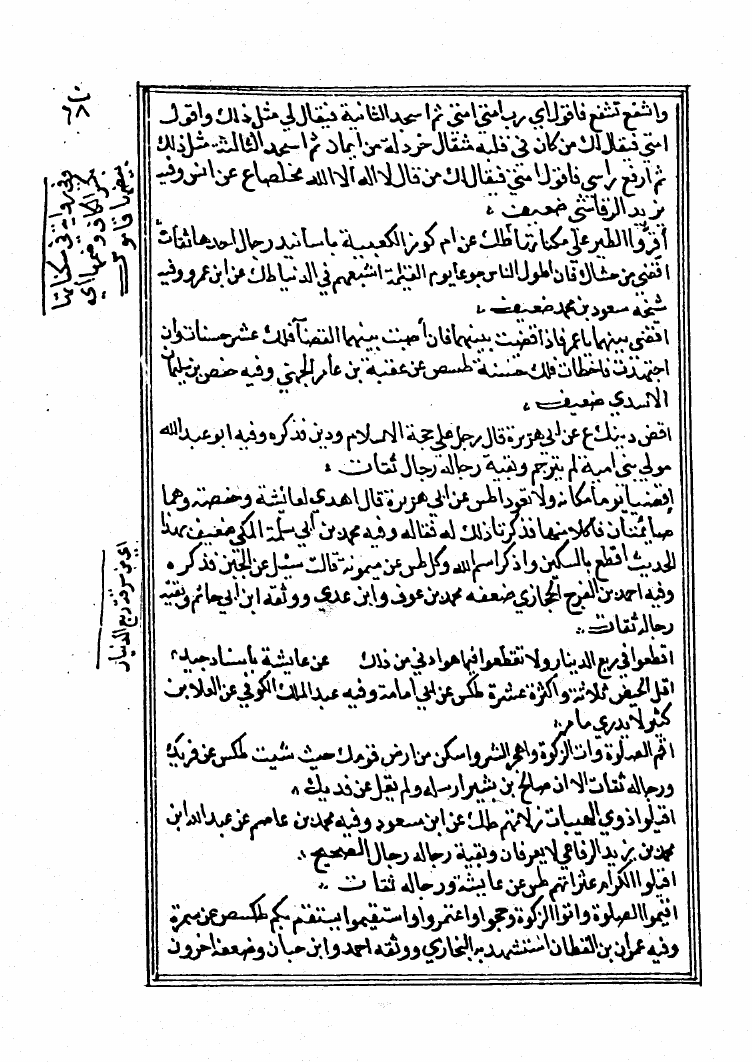 واشفع تشفع فاقول اي رب امتي امتي ثم اسجد الثانية فيقال لي مثل ذلك واقول
امتي فيقال لك من كان في قلبه مثقال خردلة من ايمان ثم اسجد الثالثة مثل ذلك
ثم ارفع راسي فاقول امتي فيقال لك من قال لا اله الا الله مخلصا ع عن انس وفيه
يزيد الرقاشي ضعيف
أقروا الطير على مكناتها طك عن ام كرز الكعبية باسانيد رجال احدها ثقات
اقصر من جشائك فان اطول الناس جوعا يوم القيمة اشبعهم في الدنيا طك عن ابن عمرو وفيه
شيخه مسعود بن محمد ضعيف
اقض بينهما يا عمرو فاذا قضيت بينهما فان أصبت بينهما القضآ فلك عشر حسنات وان
اجتهدت فاخطأت فلك حسنة طسص عن عقبة بن عامر الجهني وفيه حفص بن سليمان
الاسدي ضعيف
اقض دينك ع عن ابي هريرة قال رجل علي حجة الاسلام ودين فذكره وفيه ابو عبد الله
مولى بني امية لم يترجم وبقية رجاله رجال ثقات
اقضيا يوما مكانه ولا تعودا طس عن ابي هريرة قال اهدي لعائشة وحفصة وهما
صائمتان فاكلا منها فذكرتا ذلك له فقاله وفيه محمد بن ابي سلمة المكي ضعيف بهذا
الحديث اقطع بالسكين واذكر اسم الله وكل طس عن ميمونة قالت سئل عن الجبن فذكره
وفيه احمد بن الفرج الحجازي ضعفه محمد بن عوف وابن عدي ووثقه ابن ابي حاتم وبقية
رجاله ثقات
اقطعوا في ربع الدينار ولا تقطعوا فيما هو ادنى من ذلك عن عايشة باسناد جيد
اقل الحيض ثلاثة واكثره عشرة طكس عن ابي امامة وفيه عبد الملك الكوفي عن العلا بن
كثير لا يدري ما هو
اقم الصلوة وات الزكوة واهجر السوء واسكن من ارض قومك حيث شئت طكس عن فديك
ورجاله ثقات الا ان صالح بن بشير ارسله ولم يقل عن فديك
اقيلوا ذوي الهيبات زلاتهم طك عن ابن مسعود وفيه محمد بن عاصم عن عبد الله ابن
محمد بن يزيد الرفاعي لا يعرفان وبقية رجاله رجال الصحيح
اقيلوا الكرام عثراتهم طس عن عايشة ورجاله ثقات
اقيموا الصلوة واتوا الزكوة وحجوا واعتمروا واستقيموا يستقم بكم طكسص عن سمرة
وفيه عمران بن القطان استشهد به البخاري ووثقه احمد وابن حبان وضعفه اخرون
٦٨
وفي رواية في مكانتها
بكسر الكاف وضمها اي
بيضها قاموس